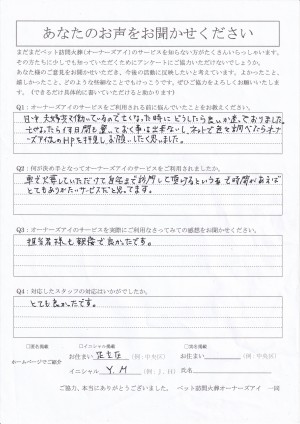 あなたのお声をお聞かせください
まだまだペット訪問火葬(オーナーズアイ)のサービスを知らない方がたくさんいらっしゃいます。
その方たちに少しでも知っていただくためにアンケートにご協力いただけないでしょうか。
あなた様のご意見をお聞かせいただき、今後の活動に反映したいと考えています。よかったこと、
嬉しかったこと、どのような些細なことでもけっこうです。ぜひご協力をよろしくお願いいたします!
(できるだけ具体的にご記入していただけると助かります)
Q1:オーナーズアイのサービスをご利用される前に悩んでいたことをお教えください。
日中夫婦共働いているので亡くなった時にどうしたら良いか迷っておりました。
ネットで色々調べたらオーナ
ーズアイ様のHPを拝見しお願いしたく思いました。
Q2:何が決め手となってオーナーズアイのサービスをご利用されましたか。
訪問して頂けるという事で時間があえば
とてもありがたいサービスだと思ってます。
Q3:オーナーズアイのサービスを実際にご利用なさってみての感想をお聞かせください。
担当者様も親切で良かったです。
Q4:対応したスタッフの対応はいかがでしたか。
とても良かったです。
ホームページでご紹介
□匿名掲載 □イニシャル掲載 □実名掲載
お住まい 足立区 (例:中央区) お住まい (例:中央区)
イニシャル Y.M (例:J.H) 氏名
ご協力、本当にありがとうございました。 ペット訪問火葬オーナーズアイ 一同